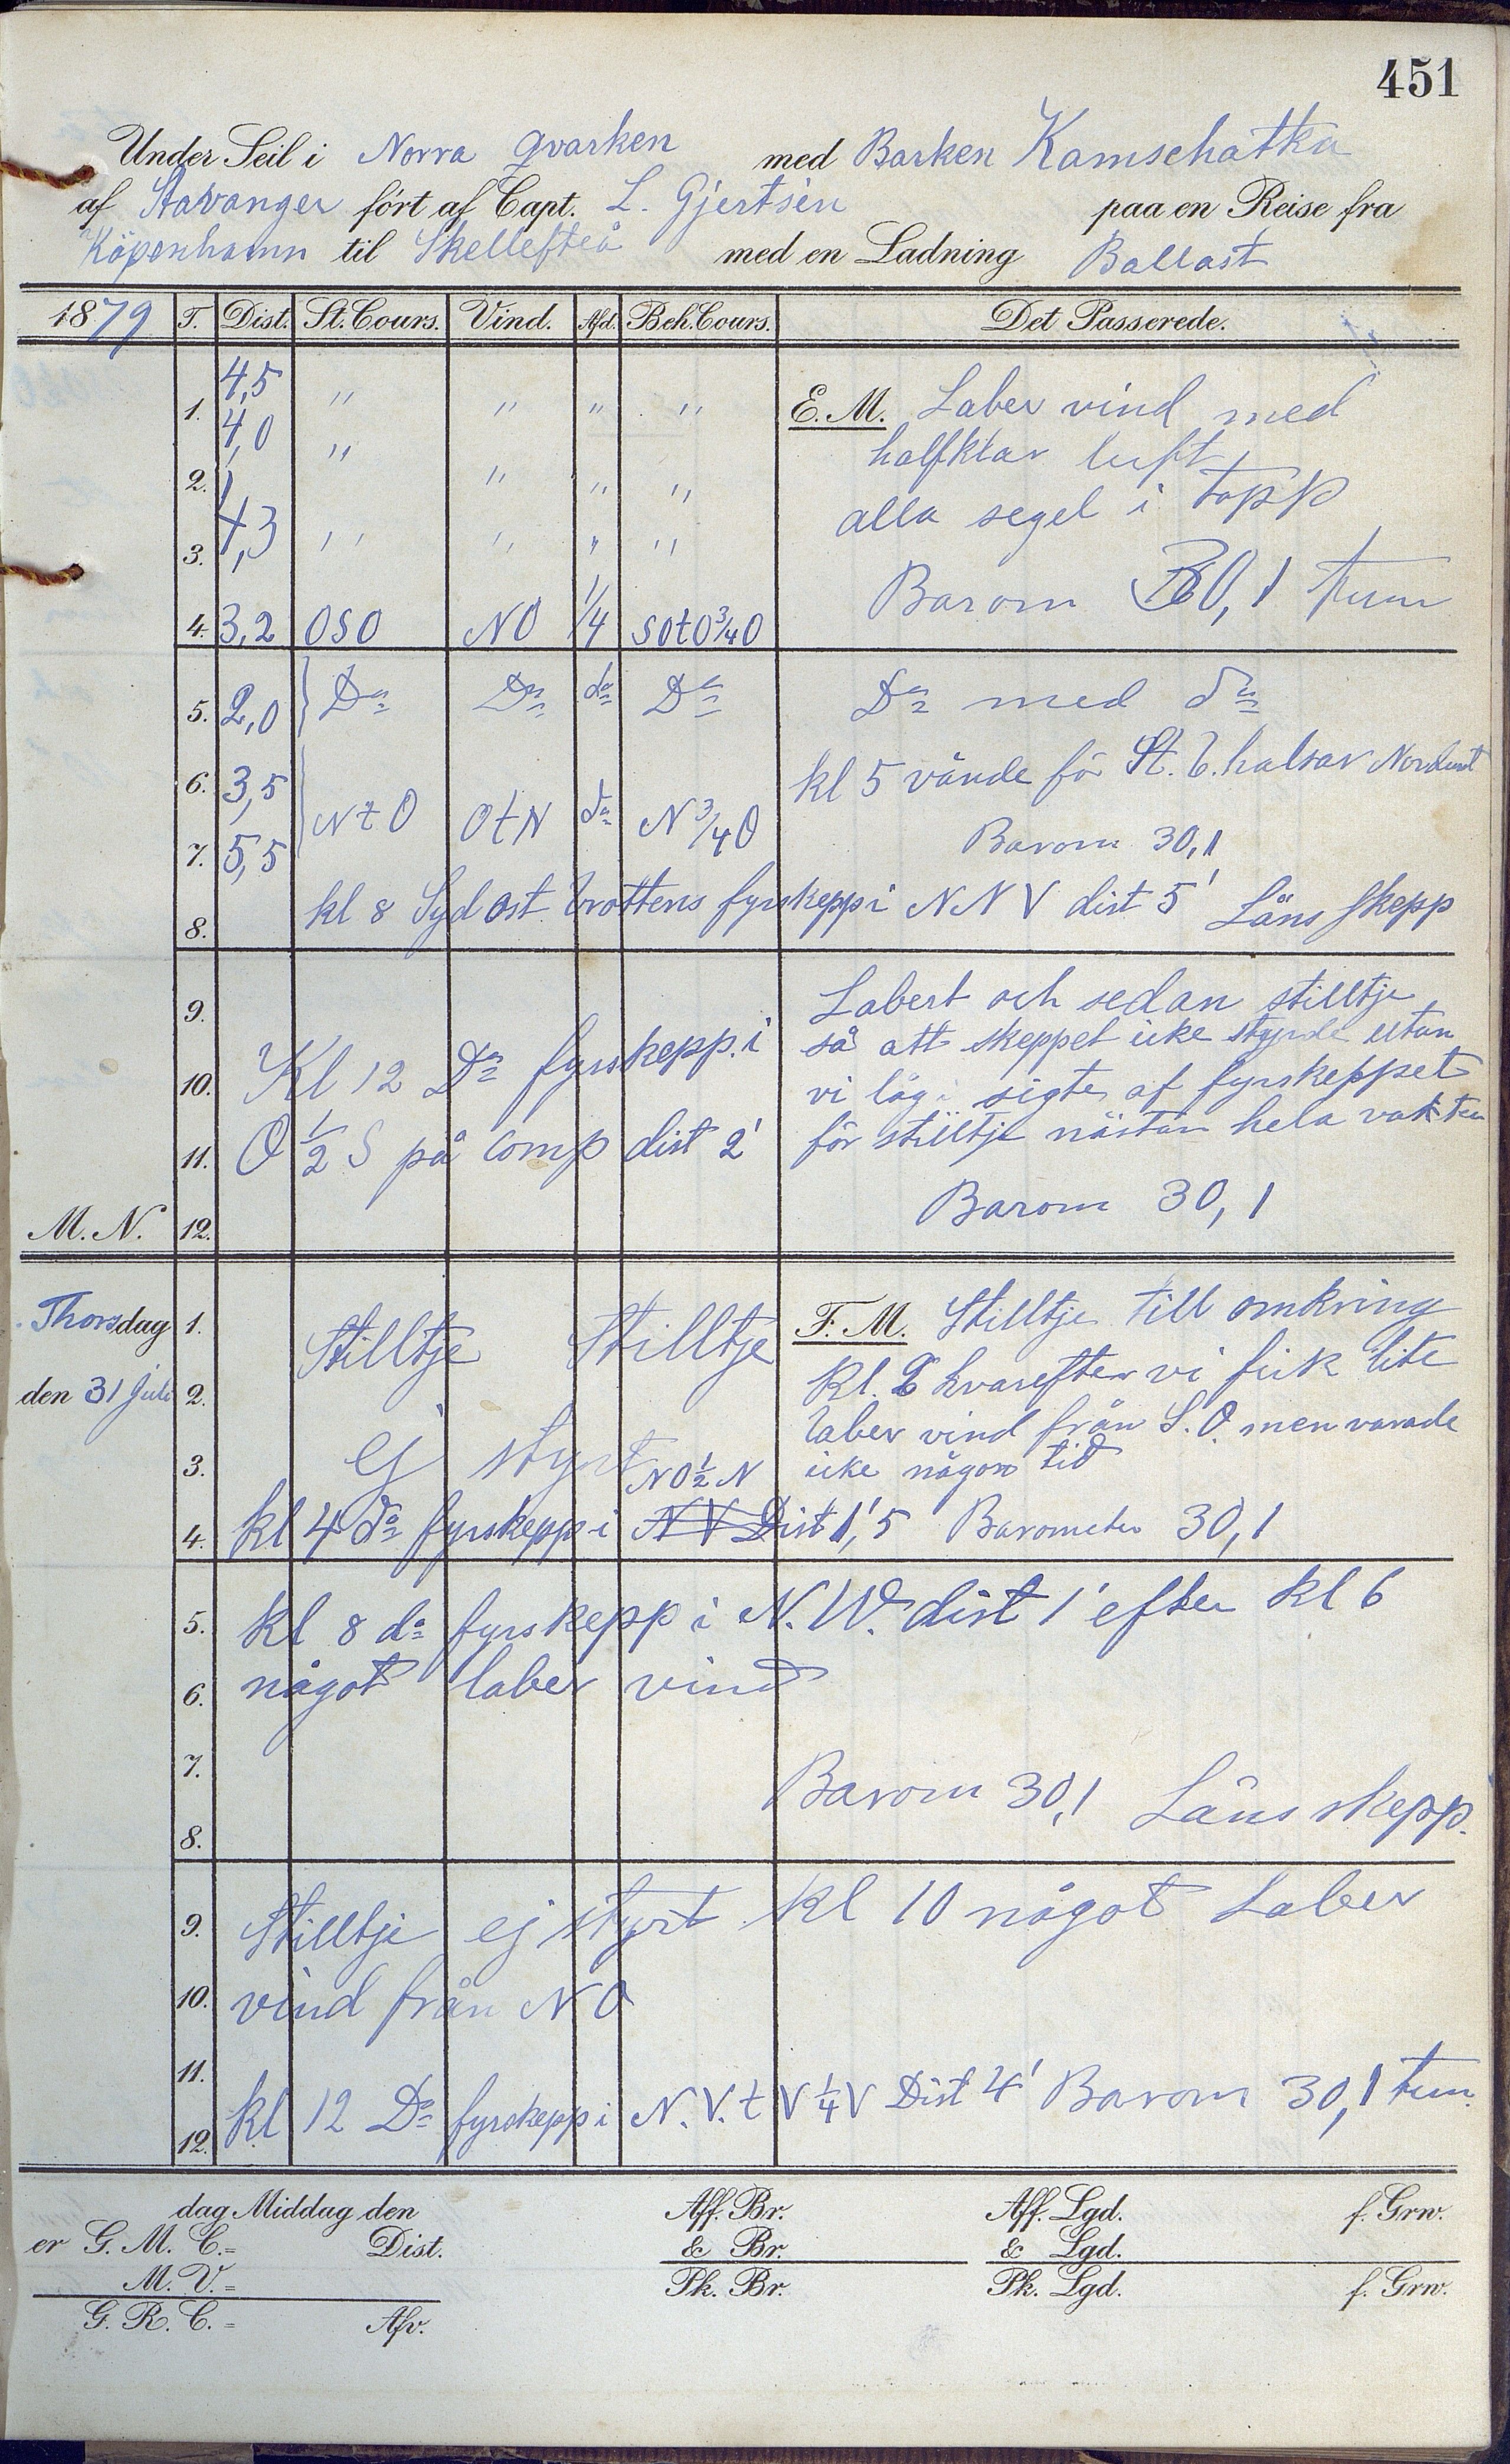 451
Under Seil i Norra Qvarken med Barken Kamschatka
af Stavanger fört af Capt. L. Gjertsen paa en Reise fra
Köpenhamn til Skellefteå med en Ladning Ballast
1879 T. Dist. St. Cours. Vind. Afd. Beh. Cours. Det Passerede.
1. 4,5 " " " " E.M. Laber vind med
2. 4,0 " " " " halfklar luft
alla segel i topp
3. 4,3 " " " "
Barom 30,1 tum
4. 3,2 OSO NO 1/4 SOtO 3/4 O
5. 2,0 Do Do do Do Do med do
6. 3,5 kl 5 vände för St. B. halsar Nordvart
7. 5,5 NtO OtN do N 3/4 O Barom 30,1
8. kl 8 Sydostbrottens fyrskepp i NNV dist 5' Läns skepp
9. Labert och sedan stilltje
så att skeppet icke styrde utan
10. Kl 12 Do fyrskepp. i vi låg i sigte af fyrskeppet
11. O 1/2 S på comp dist 2' för stilltje nästan hela vakten
Barom 30,1
M. N. 12.
Thorsdag 1. Stilltje Stilltje F. M. Stilltje till omkring
den 31 Juli 2. kl. 2 hvarefter vi fick lite
ej styrt laber vind från S.O. men varade
3. NO 1/2 N icke någon tid
4. kl 4 do fyrskepp i N V Dist 1',5 Barometer 30,1
5. kl 8 do fyrskepp i N.W. dist 1' efter kl 6
6. något laber vind
7. Barom 30,1 Läns skepp.
8.
9. Stilltje ej styrt kl 10 något Laber
10. vind från NO
11.
12. kl 12 Do fyrskepp i N.V.t V 1/4 V Dist 4' Barom 30,1 tum.
dag Middag den Aff. Br. Aff. Lgd. f. Grw.
er G. M. C.= Dist. & Br. & Lgd.
M. V.= Pk. Br. Pk. Lgd. f. Grw.
G. R. C.= Afv.